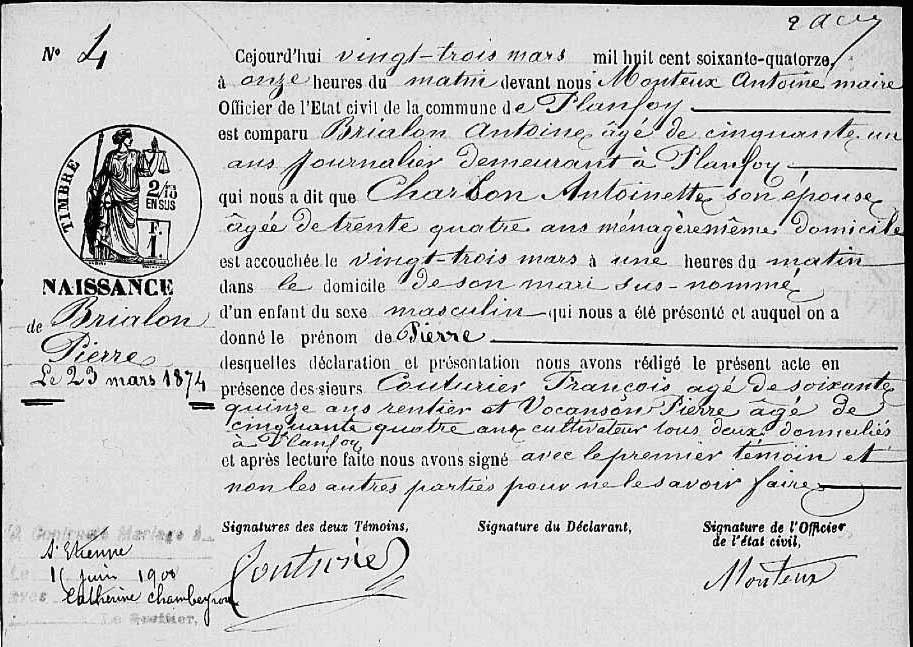 Nº 4
Cejourd'hui vingt-trois mars mil huit cent soixante-quatorze,
à onze heures du matin devant nous Monteux Antoine maire
Officier de l'Etat civil de la commune de Planfoy
est comparu Brialon Antoine âgé de cinquante un
ans journalier demeurant à Planfoy
qui nous a dit que Charbon Antoinette son épouse
âgée de trente quatre ans ménagère même domicile
est accouchée le vingt-trois mars à une heures du matin
dans le domicile de son mari sus-nommé
d'un enfant du sexe masculin qui nous a été présenté et auquel on a
donné le prénom de Pierre
desquelles déclaration et présentation nous avons rédigé le présent acte en
présence des sieurs Couturier François agé de soixante
quinze ans rentier et Vocanson Pierre âgé de
cinquante quatre ans cultivateur tous deux domiciliés
à Planfoy
et après lecture faite nous avons signé avec le premier témoin et
non les autres parties pour ne le savoir faire
TIMBRE
2/10
EN SUS
F.
1.
NAISSANCE
de Brialon
Pierre
Le 23 mars 1874
Signatures des deux Témoins,
Signature du Déclarant,
Signature de l'Officier
de l'état civil,
Couturier
Monteux
Contracté Mariage à
St Etienne
Le juin 1900
avec Catherine Chambeyron
Le Greffier.